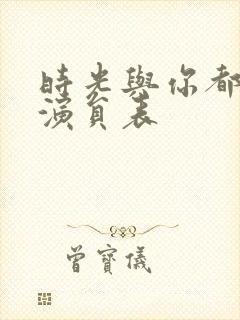 時光與你都
演員表
曾寶儀